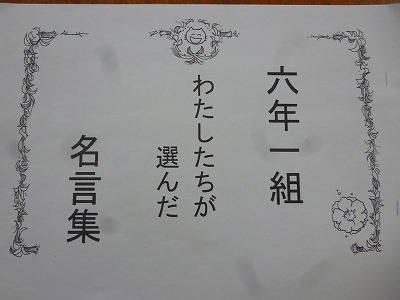 六年一組
わたしたちが
選んだ
名言集